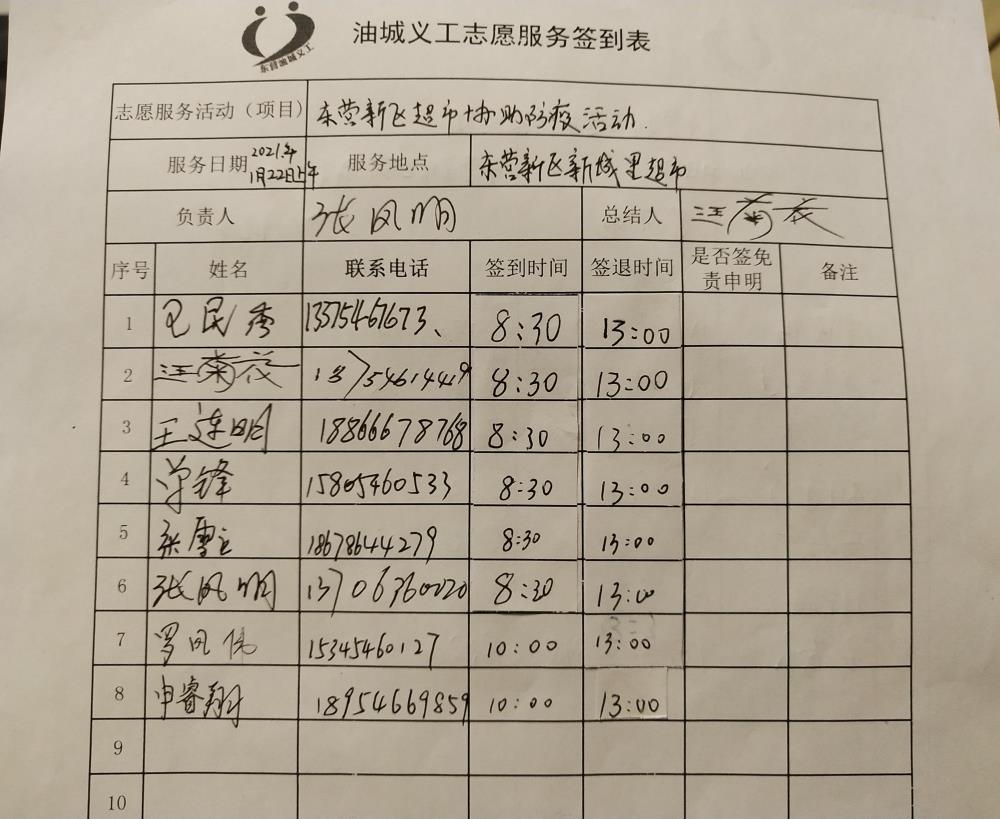 东营油城义工
油城义工志愿服务签到表
志愿服务活动（项目） 东营新区超市协助防疫活动.
服务日期 2021.年1月22日上午 服务地点 东营新区新城里超市
负责人 张凤明 总结人 汪菊花
序号 姓名 联系电话 签到时间 签退时间 是否签免责申明 备注
1 民秀 13375467673、 8:30 13:00
2 汪菊花 13754614419 8:30 13:00
3 王连明 18866678768 8:30 13:00
4 单锋 15805460533 8:30 13:00
5 张雪 18678644279 8:30 13:00
6 张凤明 13706360020 8:30 13:00
7 罗凤伟 15345460127 10:00 13:00
8 申睿翔 18954669859 10:00 13:00
9
10